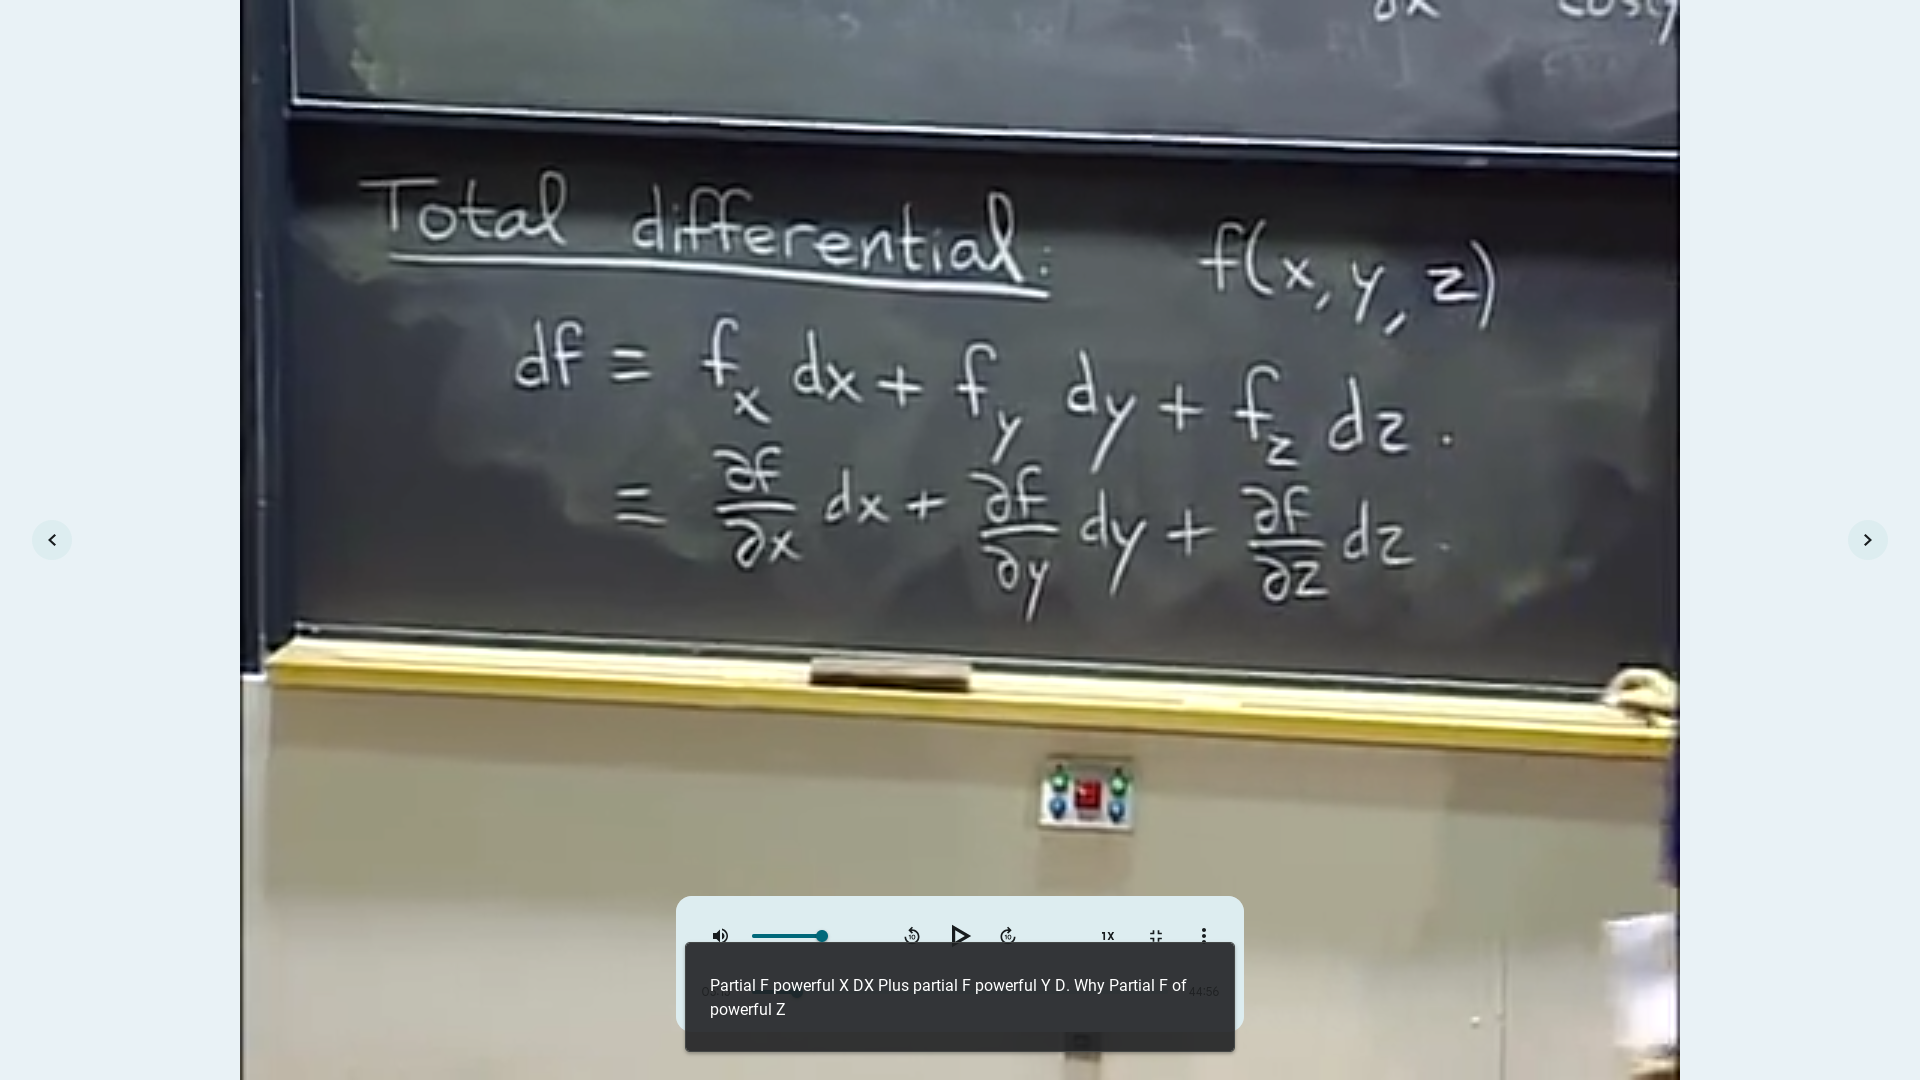 ∂x
Total differential: f(x, y, z)
df = f_x dx + f_y dy + f_z dz.
= ∂f/∂x dx + ∂f/∂y dy + ∂f/∂z dz.
10 10 1X
Partial F powerful X DX Plus partial F powerful Y D. Why Partial F of
powerful Z
44:56